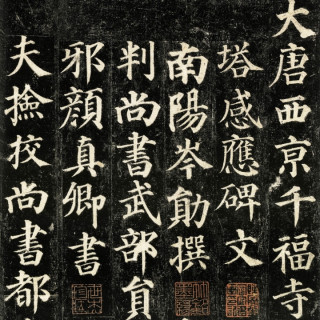 大唐西亰千福寺
塔感應碑文
南陽岑勛撰
判尚書武部員
邪顏真卿書
夫撿挍尚書都